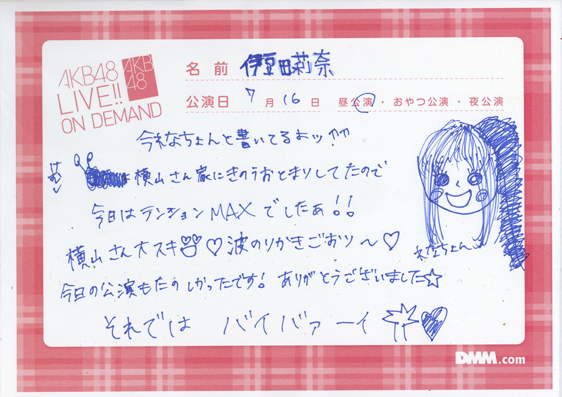 AKB48
LIVE!!
ON DEMAND
AKB
48
名前 伊豆田莉奈
公演日 7月16日 昼公演・おやつ公演・夜公演
今れなちょんと書いてるよッ
横山さん家にきのうおとまりしてたので
今日はテンションMAXでしたぁ!!
横山さん大スキ♡波のりかきごおり~♡
今日の公演もたのしかったです! ありがとうございました☆
それでは バイバァーイ
れなちょん
DMM.com